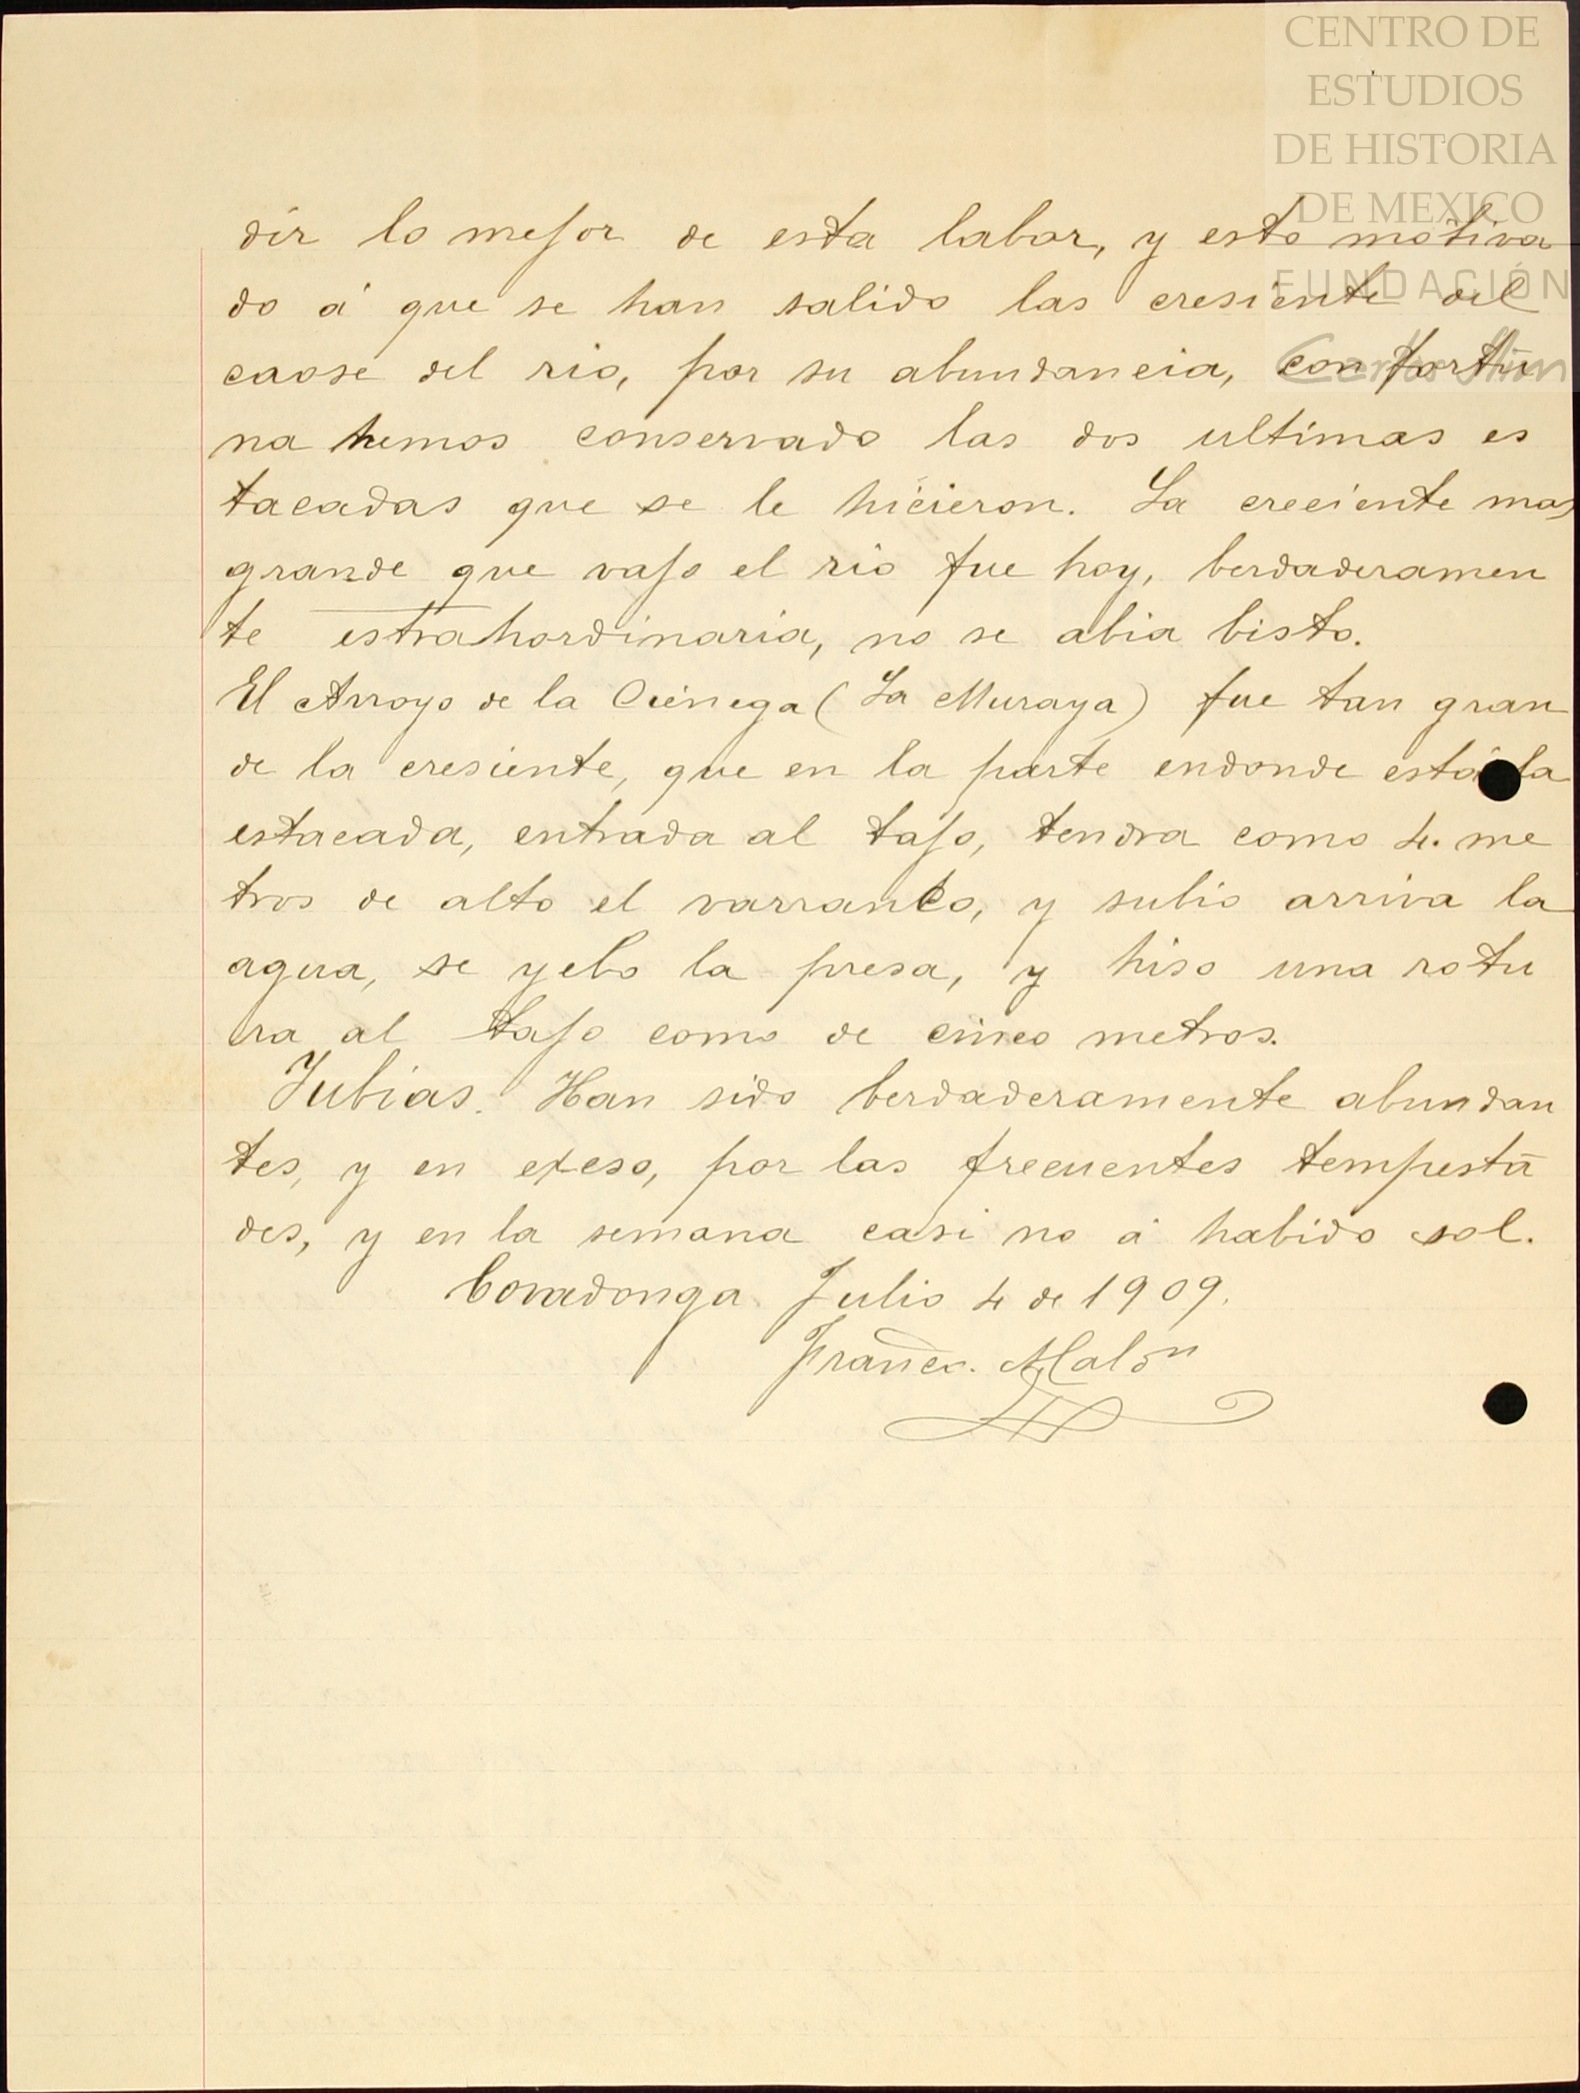 CENTRO DE
ESTUDIOS
DE HISTORIA
DE MEXICO
FUNDACIÓN
Carlos Slim
dir lo mejor de esta labor, y esto motiva
do á que se han salido las cresiente del
caose del rio, por su abundancia, con fortu
na hemos conservado las dos ultimas es
tacadas que se le hicieron. La creciente mas
grande que vajo el rio fue hoy, berdaderamen
te estrahordinaria, no se abia bisto.
El Arroyo de la Cienega (La Muraya) fue tan gran
de la cresiente, que en la parte endonde está la
estacada, entrada al tajo, tendra como 4. me
tros de alto el varranco, y subio arriva la
agua, se yebo la presa, y hiso una rotu
ra al tajo como de cinco metros.
Jubias. Han sido berdaderamente abundan
tes, y en exeso, por las frecuentes tempesta
des, y en la semana casi no á habido sol.
Covadonga Julio 4 de 1909.
Franco. Malón